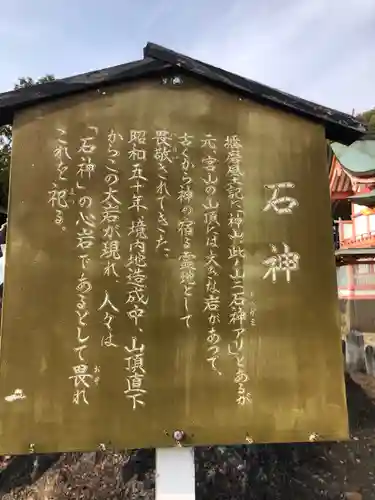 石神
播磨風土記に「神山 此ノ山ニ石神アリ」とあるが
いしがみ
元、宮山の山頂には大きな岩があって、
古くから神の宿る霊地として
畏敬されてきた。
昭和五十年、境内地造成中、山頂直下
からこの大岩が現れ、人々は
「石神」の心岩であるとして畏れ
おそ
これを祀る。